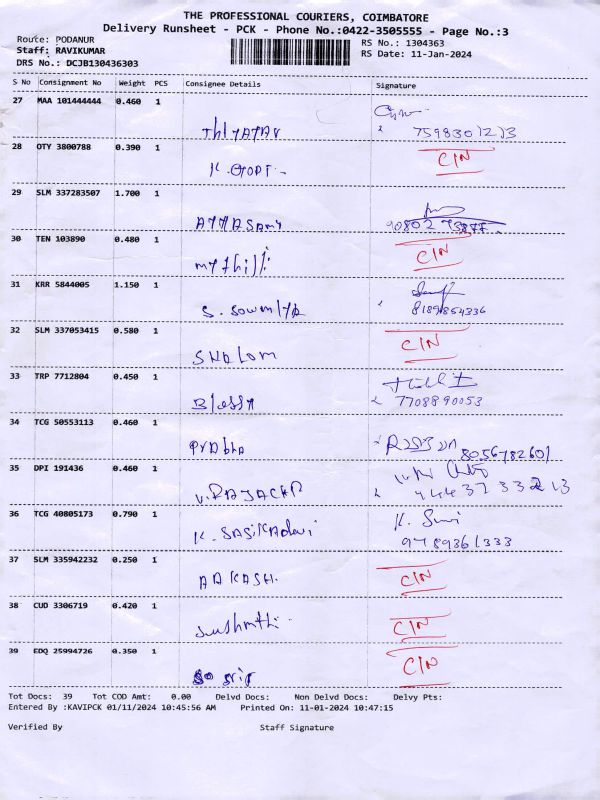 THE PROFESSIONAL COURIERS, COIMBATORE
Delivery Runsheet - PCK - Phone No.:0422-3505555 - Page No.:3
Route: PODANUR RS No.: 1304363
Staff: RAVIKUMAR RS Date: 11-Jan-2024
DRS No.: DCJB130436303
S No Consignment No Weight PCS Consignee Details Signature
27 MAA 101444444 0.460 1
28 OTY 3800788 0.390 1 C/N
K. GOPI -
29 SLM 337283507 1.700 1
30 TEN 103890 0.480 1 C/N
mythili
31 KRR 5844005 1.150 1
S. Sowmiya 8189854336
32 SLM 337053415 0.580 1 C/N
SHALOM
33 TRP 7712804 0.450 1
Blessy 7708890053
34 TCG 50553113 0.460 1
Prabha 8056782601
35 DPI 191436 0.460 1
36 TCG 40805173 0.790 1
K. SASIKAdevi
9789361333
37 SLM 335942232 0.250 1 C/N
AAKASH.
38 CUD 3306719 0.420 1 C/N
39 EDQ 25994726 0.350 1 C/N
Tot Docs: 39 Tot COD Amt: 0.00 Delvd Docs: Non Delvd Docs: Delvy Pts:
Entered By :KAVIPCK 01/11/2024 10:45:56 AM Printed On: 11-01-2024 10:47:15
Verified By Staff Signature